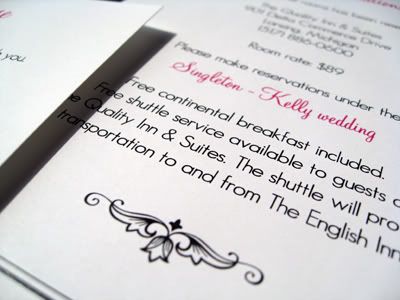 you.
The Quality Inn & Suites
901 Delta Commerce Drive
Lansing, Michigan
(517) 886-0600
Room rate: $89
Please make reservations under the
Singleton - Kelly wedding
Free continental breakfast included.
Free shuttle service available to guests
Quality Inn & Suites. The shuttle will
transportation to and from The English Inn